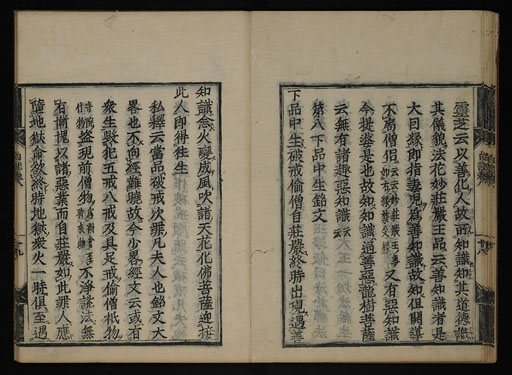 靈芝云以善化人故而知識知其道德識
其儀貌法花妙莊嚴王品云善知識者是
大因緣即指妻兒爲善知識故知但關導
不局僧侶
又有惡知識
今提婆是也故知知識通善惡龍樹菩薩
云無有諸趣惡知識
第八下品中生銘文
下品中生破戒偷僧自莊嚴終時出現遇善
知識念火變成風吹諸天花化佛菩薩迎接
此人即得往生
私釋云當品破戒次罪凡夫人也銘文大
畧也不向經難曉故今少畧經文云或有
衆生毀犯五戒八戒及具足戒偷僧祇物
盜現前僧物
不淨說法無
有慚愧以諸惡業而自莊嚴如此罪人應
墮地獄命欲終時地獄衆火一時俱至遇